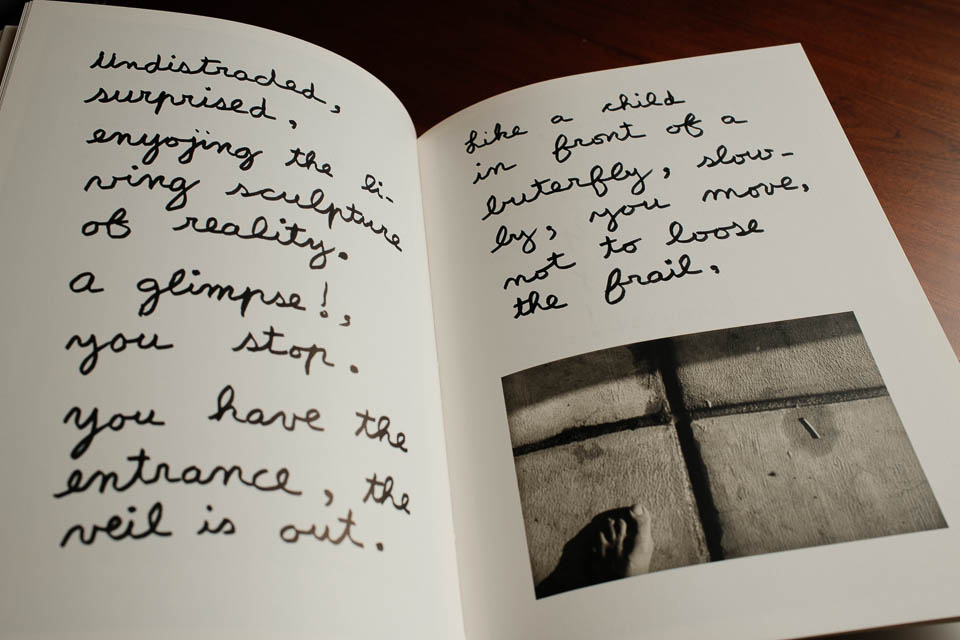 Undistraded,
surprised,
enyojing the li-
ving sculpture
of reality.
a glimpse!,
you stop.
you have the
entrance, the
veil is out.
Like a child
in front of a
buterfly, slow-
ly, you move,
not to loose
the frail,